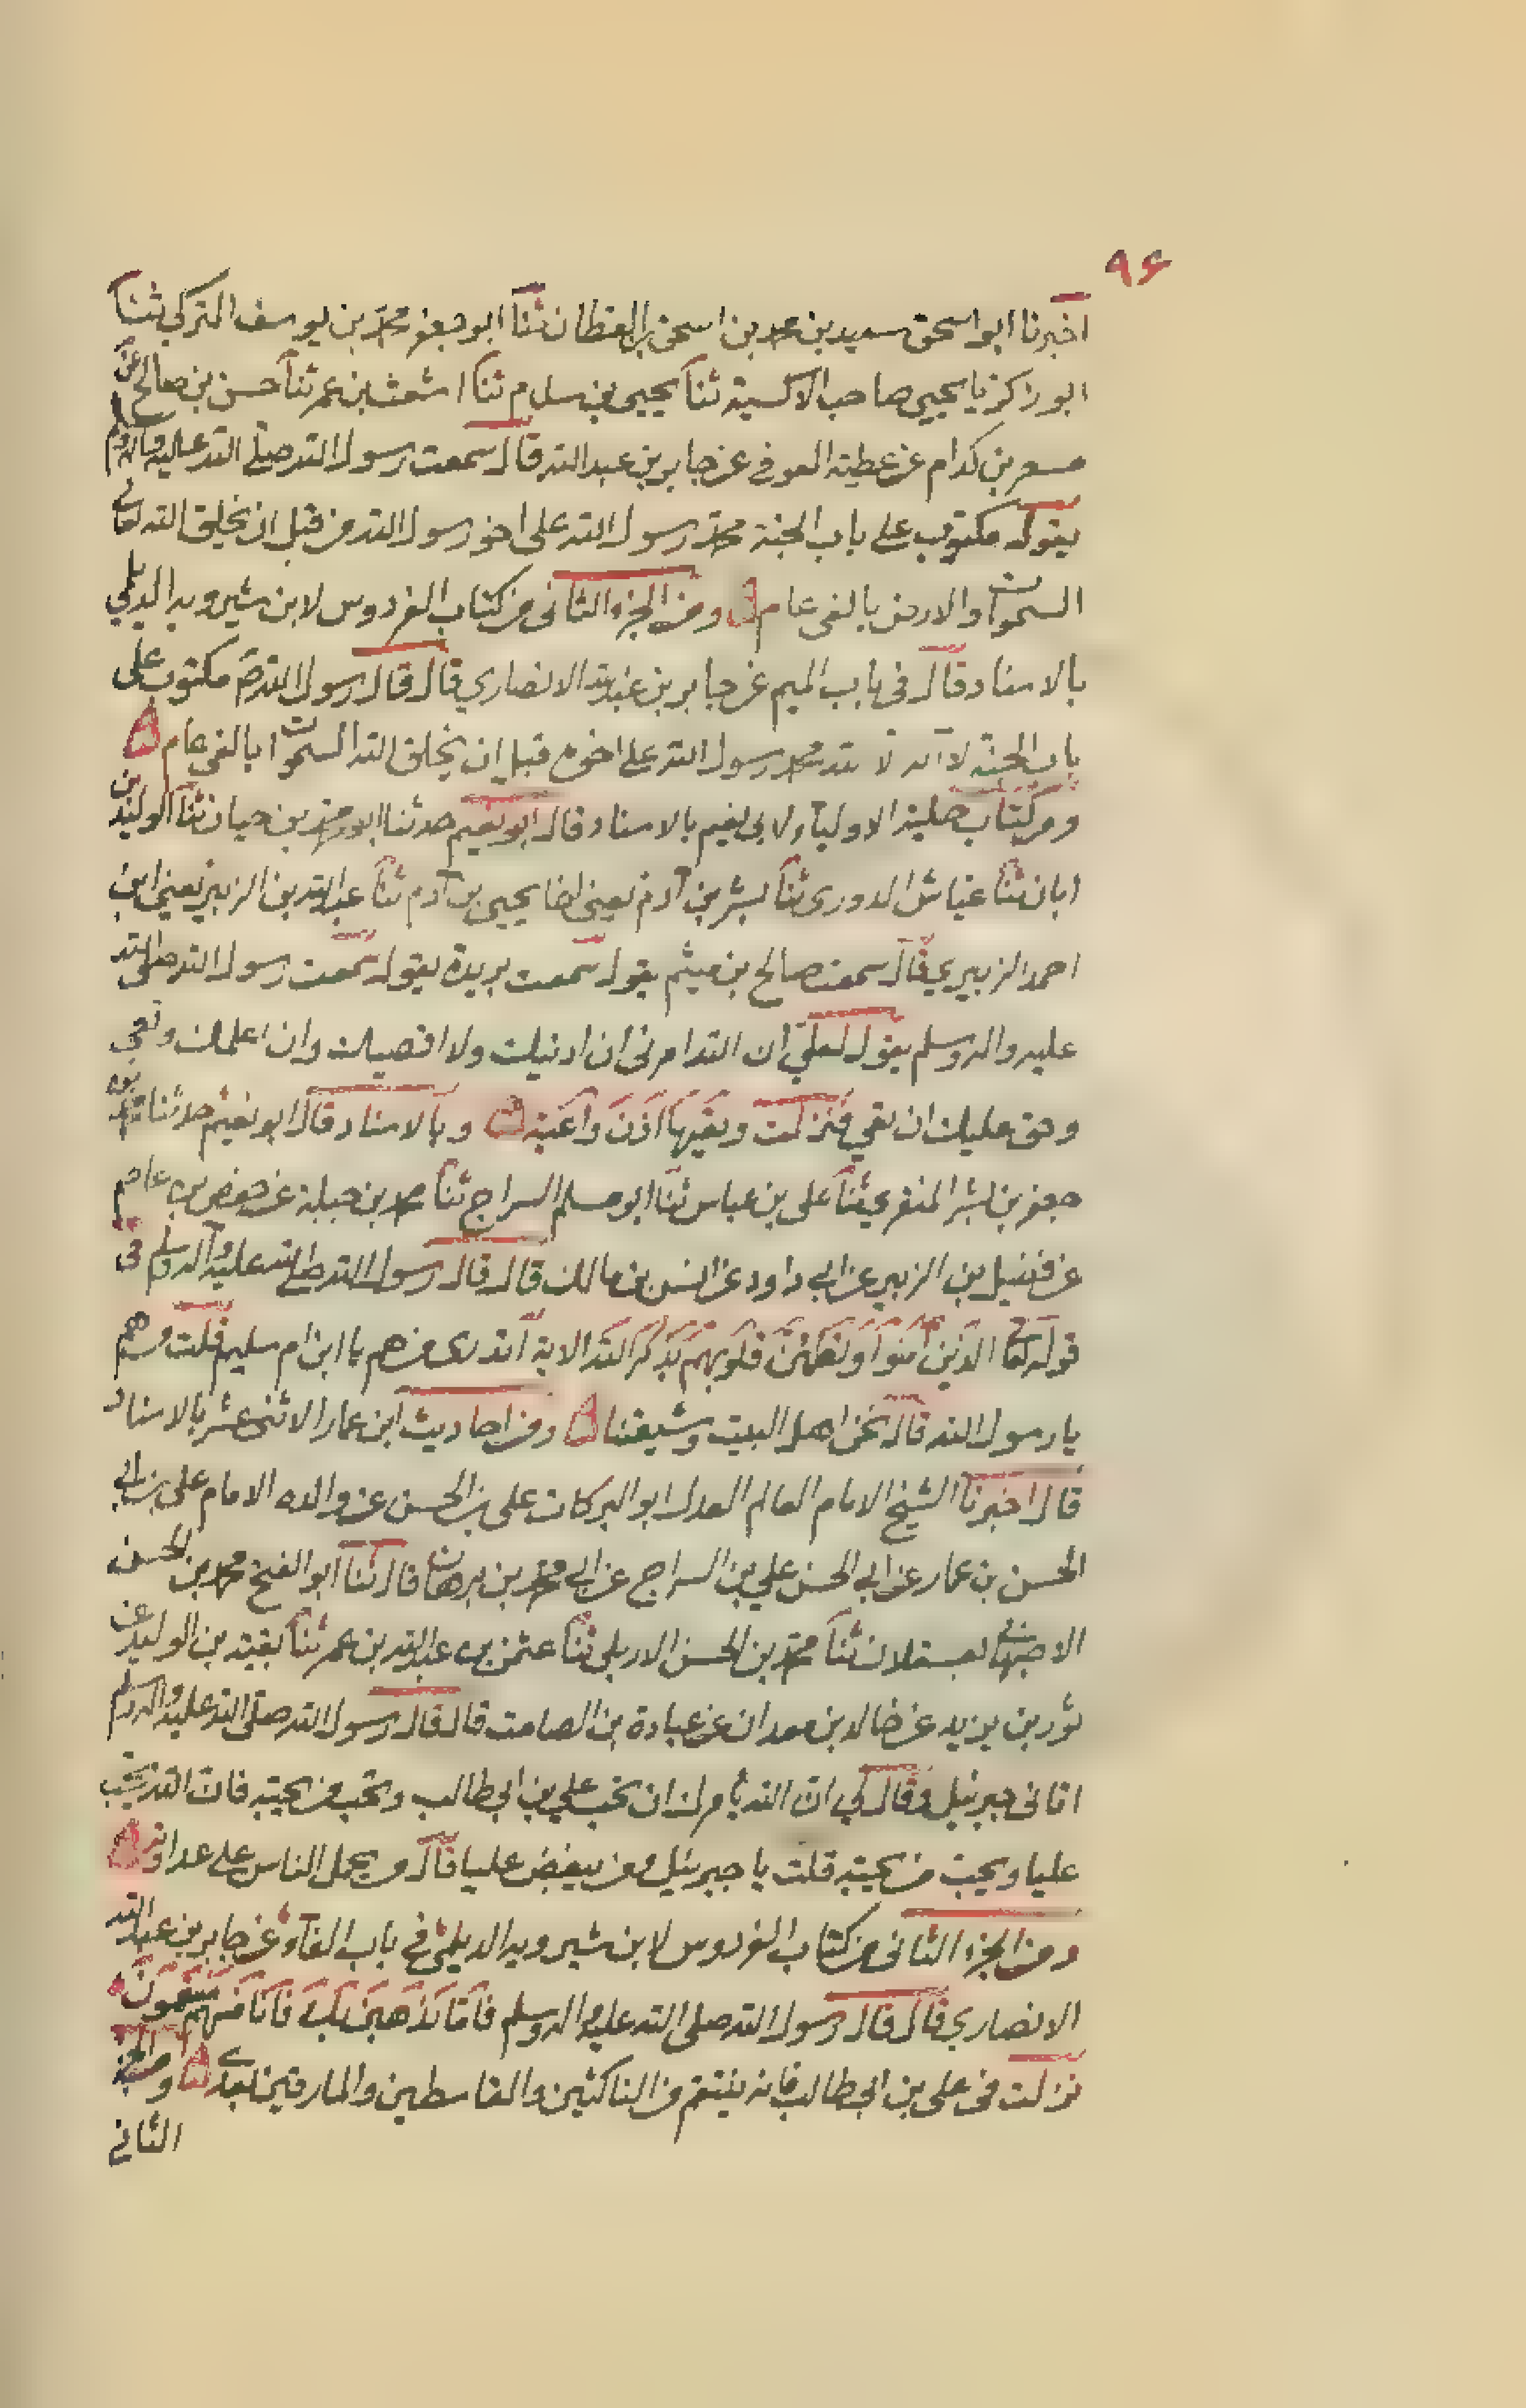 ۹۶
اخبرنا ابو اسحق سعيد بن محمد بن اسحق بن القطان ثنا ابو جعفر محمد بن يوسف التركي ثنا
ابو زكريا يحيى صاحب الاكسية ثنا يحيى بن سلام ثنا اشعث بن عمر ثنا حسن بن صالح عن
مسعر بن كدام عن عطية العوفى عن جابر بن عبد الله قال سمعت رسول الله صلى الله عليه وآله وسلم
يقول مكتوب على باب الجنة محمد رسول الله على اخو رسول الله من قبل ان يخلق الله تعالى
السموات والارض بالفى عام ومن الجزء الثانى من كتاب الفردوس لابن شيرويه الديلمي
بالاسناد قال فى باب الميم عن جابر بن عبد الله الانصاري قال قال رسول الله ص مكتوب على
باب الجنة لا اله الا الله محمد رسول الله على اخوه قبل ان يخلق الله السموات بالفى عام
ومن كتاب حلية الاولياء لابى نعيم بالاسناد قال ابو نعيم حدثنا ابو محمد بن حيان ثنا الوليد بن
ابان ثنا عباش الدورى ثنا بشر بن آدم يعنى اخا يحيى بن آدم ثنا عبد الله بن الزبير يعنى ابن
احمد الزبيري قال سمعت صالح بن ميثم يقول سمعت بريدة يقول سمعت رسول الله صلى الله
عليه وآله وسلم يقول لعلي ان الله امرنى ان ادنيك ولا اقصيك وان اعلمك وتعي
وحق عليك ان تعي فنزلت وتعيها اذن واعية وبالاسناد قال ابو نعيم حدثنا محمد بن
جعفر بن بشر المنقري ثنا على بن عباس ثنا ابو مسلم السراج ثنا محمد بن جبلة عن حفص بن عاصم
عن فضيل بن الزبير عن ابى داود عن انس بن مالك قال قال رسول الله صلى الله عليه وآله وسلم فى
قوله تعالى الذين آمنوا وتطمئن قلوبهم بذكر الله الاية أتدرى من هم يا ابن ام سليم قلت ومن هم
يا رسول الله قال نحن اهل البيت وشيعتنا ومن احاديث ابن عمار الاثنى عشر بالاسناد
قال اخبرنا الشيخ الامام العالم العدل ابو البركات على بن الحسن عن والده الامام على بن ابى
الحسن بن عمار عن ابي الحسن علي بن السراج عن ابى محمد بن برهان قال ثنا ابو الفتح محمد بن الحسن
الاصبهانى بعسقلان ثنا محمد بن الحسن الاربلى ثنا عثمن بن عبد الله بن عمر ثنا بقية بن الوليد عن
ثور بن يزيد عن خالد بن معدان عن عبادة بن الصامت قال قال رسول الله صلى الله عليه وآله وسلم
اتانى جبرئيل وقال لي ان الله يأمرك ان تحب علي بن ابي طالب وتحب من يحبه فان الله يحب
عليا ويحب من يحبه قلت يا جبرئيل ومن يبغض عليا قال من يحمل الناس على عداوته
ومن الجزء الثانى من كتاب الفردوس لابن شيرويه الديلمي في باب الفاء عن جابر بن عبد الله
الانصاري قال قال رسول الله صلى الله عليه وآله وسلم فاما نذهبن بك فانا منهم منتقمون
نزلت فى على بن ابي طالب فانه ينتقم من الناكثين والقاسطين والمارقين بعدى ومن الجزء
الثانى